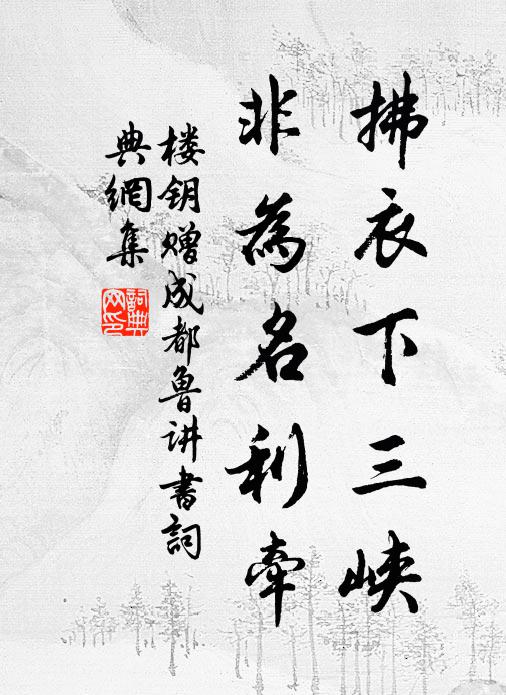 拂衣下三峡
非為名利牽
楼钥赠成都鲁讲书詞
典網集
詞典网印